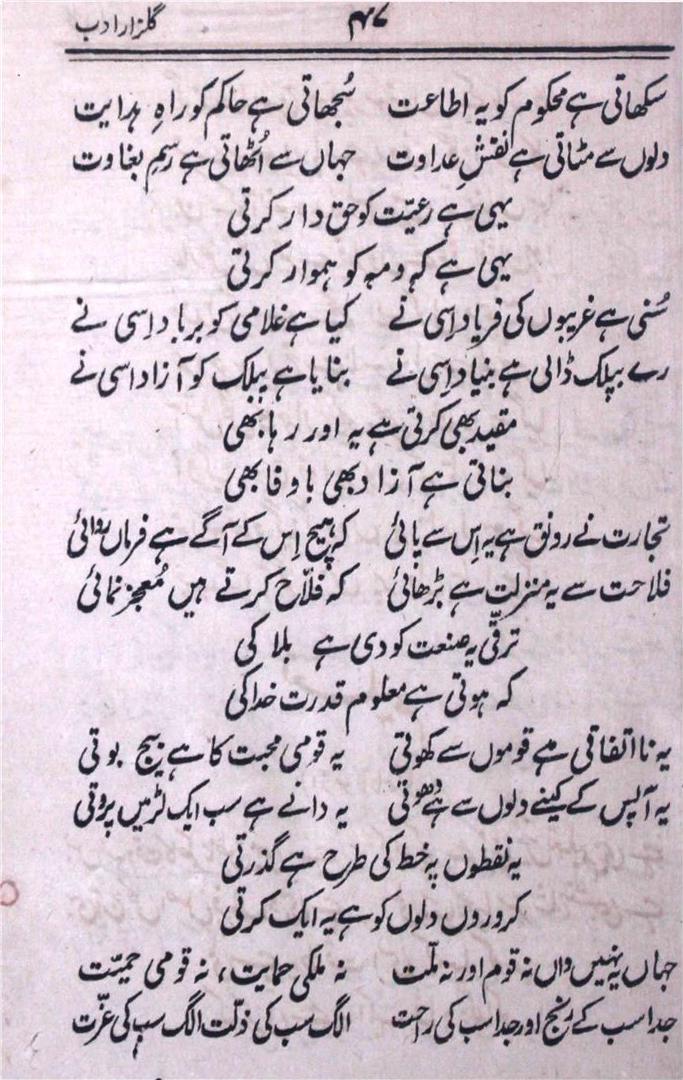 گلزار ادب ۴۷
سکھاتی ہے محکوم کو یہ اطاعت سُجھاتی ہے حاکم کو راہِ ہدایت
دلوں سے مٹاتی ہے نقشِ عداوت جہاں سے اُٹھاتی ہے رسمِ بغاوت
یہی ہے رعیّت کو حق دار کرتی
یہی ہے کہ ومہ کو ہموار کرتی
سُنی ہے غریبوں کی فریاد اِسی نے کیا ہے غلامی کو برباد اِسی نے
رے پبلک ڈالی ہے بنیاد اِسی نے بنایا ہے پبلک کو آزاد اسی نے
مقید بھی کرتی ہے یہ اور رہا بھی
بناتی ہے آزاد بھی باوفا بھی
تجارت نے رونق ہے یہ اِس سے پائی کہ ہیچ اِس کے آگے ہے فرماں روائی
فلاحت سے یہ منزلت ہے بڑھائی کہ فلاّح کرتے ہیں مُعجز نمائی
ترقی یہ صنعت کو دی ہے بلا کی
کہ ہوتی ہے معلوم قدرت خدا کی
یہ نااتفاقی ہے قوموں سے کھوتی یہ قومی محبت کا ہے بیج بوتی
یہ آپس کے کینے دلوں سے ہے دھوتی یہ دانے ہے سب ایک لڑ میں پروتی
یہ نقطوں پہ خط کی طرح ہے گذرتی
کروروں دلوں کو ہے یہ ایک کرتی
جہاں یہ نہیں واں نہ قوم اور نہ ملّت نہ ملکی حمایت، نہ قومی حمیّت
جدا سب کے رنج اور جدا سب کی راحت الگ سب کی ذلّت الگ سب کی عزّت